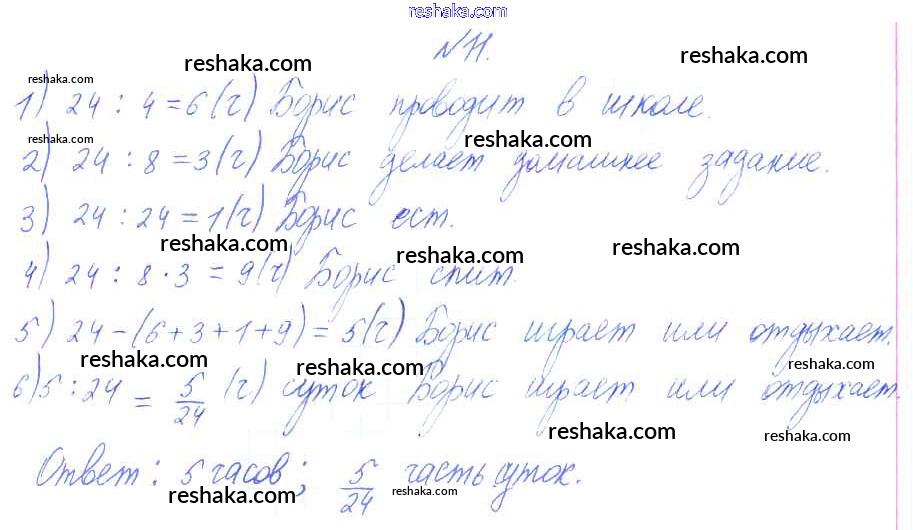 reshaka.com
reshaka.com N11. reshaka.com
reshaka.com
1) 24 : 4 = 6 (г) Борис проводит в школе.
reshaka.com reshaka.com
2) 24 : 8 = 3 (г) Борис делает домашнее задание.
3) 24 : 24 = 1 (г) Борис ест.
reshaka.com reshaka.com reshaka.com
4) 24 : 8 · 3 = 9 (г) Борис спит.
5) 24 - (6 + 3 + 1 + 9) = 5 (г) Борис играет или отдыхает.
reshaka.com reshaka.com reshaka.com
6) 5 : 24 = 5/24 (г) суток Борис играет или отдыхает.
reshaka.com reshaka.com
Ответ: 5 часов; 5/24 часть суток.
reshaka.com reshaka.com